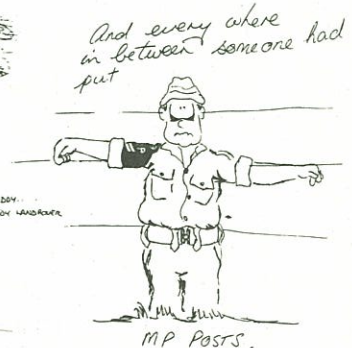 And every where
in between someone had
put
LANDROVER
MP POSTS.